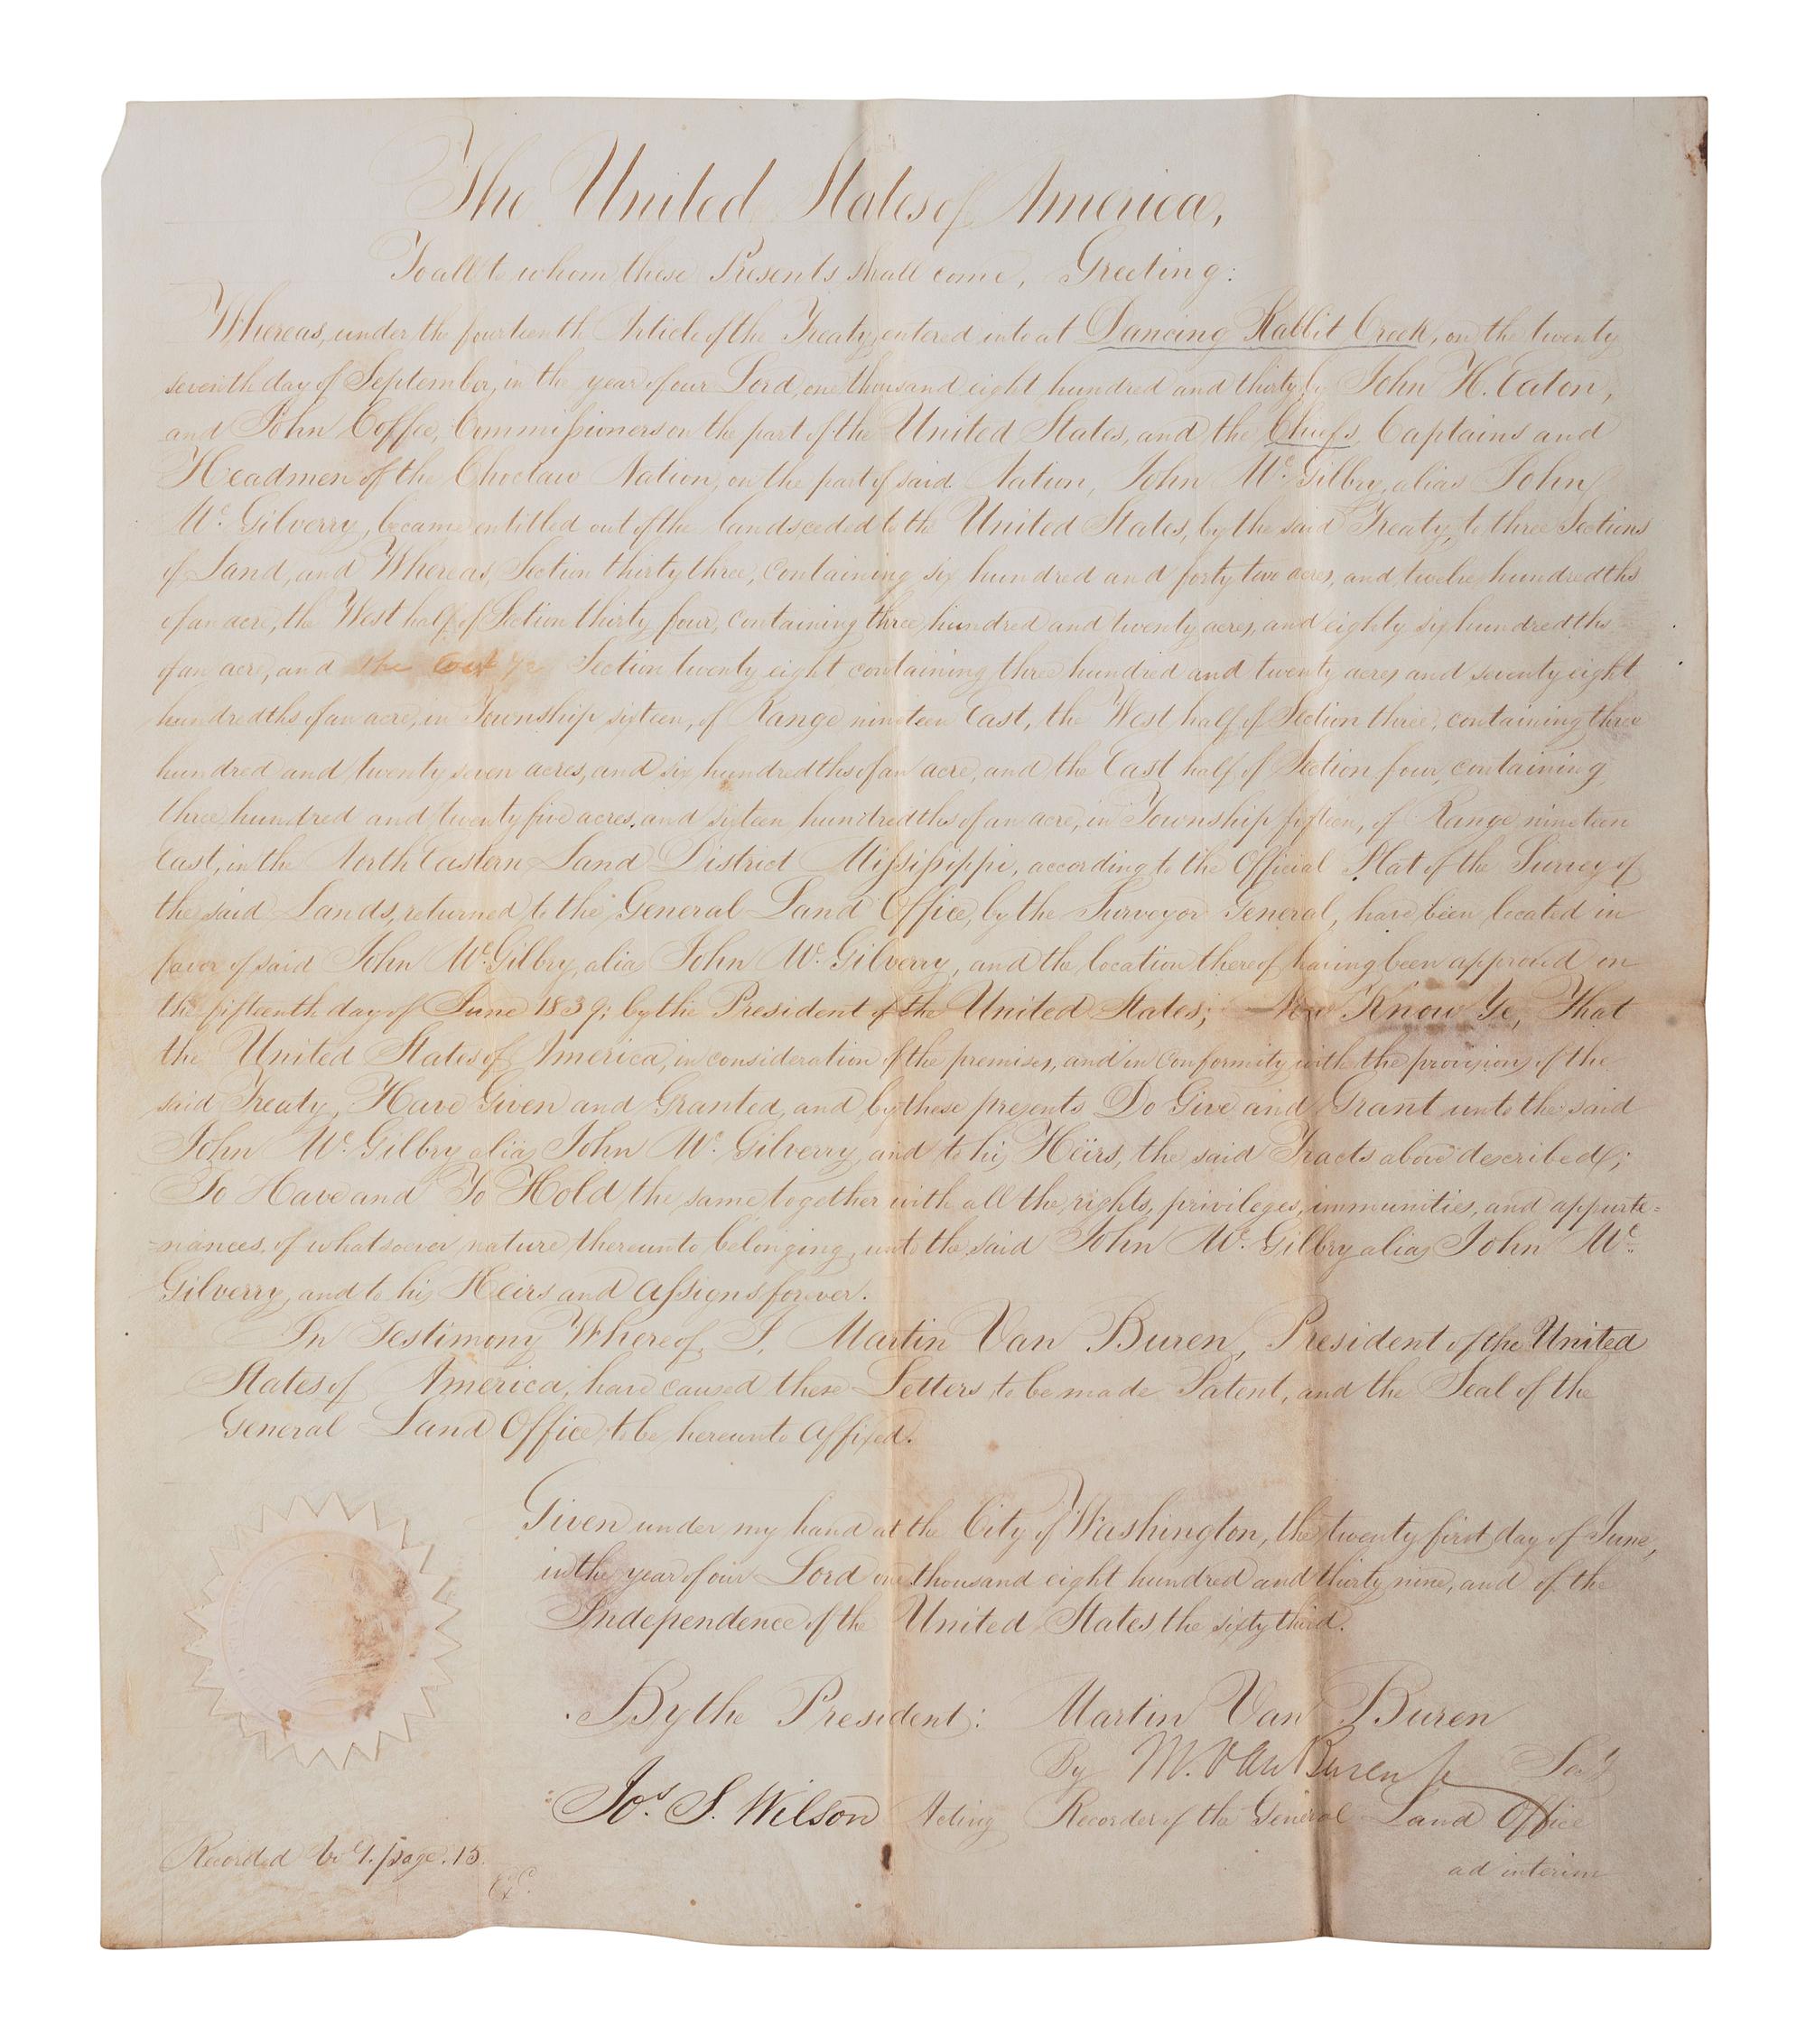 The United States of America,
To all to whom these Presents shall come, Greeting:
Whereas, under the fourteenth Article of the Treaty, entered into at Dancing Rabbit Creek, on the twenty
seventh day of September, in the year of our Lord, one thousand eight hundred and thirty, by John H. Eaton,
and John Coffee, Commissioners on the part of the United States, and the Chiefs Captains and
Headmen of the Choctaw Nation, on the part of said Nation, John Mc. Gilbry, alias John
Mc. Gilverry, became entitled out of the lands ceded to the United States, by the said Treaty, to three Sections
of Land, and Whereas, Section thirty three, containing six hundred and forty two acres, and twelve hundredths
of an acre, the West half of Section thirty four, containing three hundred and twenty acres, and eighty six hundredths
of an acre, and the East ½ Section twenty eight containing three hundred and twenty acres and seventy eight
hundredths of an acre, in Township sixteen, of Range nineteen East, the West half of Section three, containing three
hundred and twenty seven acres, and six hundredths of an acre, and the East half of Section four, containing
three hundred and twenty five acres, and sixteen hundredths of an acre, in Township fifteen, of Range nineteen
East, in the North Eastern Land District Mississippi, according to the Official Plat of the Survey of
the said Lands, returned to the General Land Office, by the Surveyor General, have been located in
favor of said John Mc. Gilbry, alias John Mc. Gilverry, and the location thereof having been approved on
the fifteenth day of June 1839; by the President of the United States; Now Know Ye, That
the United States of America, in consideration of the premises, and in conformity with the provisions of the
said Treaty, Have Given and Granted, and by these presents Do Give and Grant unto the said
John Mc. Gilbry alias John Mc. Gilverry, and to his Heirs, the said Tracts above described;
To Have and To Hold the same together with all the rights, privileges, immunities, and appurte=
=nances, of whatsoever nature, thereunto belonging, unto the said John Mc. Gilbry alias John Mc.
Gilverry, and to his Heirs and Assigns forever.
In Testimony Whereof, I, Martin Van Buren, President of the United
States of America, have caused these Letters to be made Patent, and the Seal of the
General Land Office to be hereunto Affixed.
Given under my hand at the City of Washington, the twenty first day of June,
in the year of our Lord one thousand eight hundred and thirty nine, and of the
Independence of the United States the sixty third.
By the President: Martin Van Buren
By M. Van Buren Jr Sec'y
Jos. S. Wilson Acting Recorder of the General Land Office
ad interim
Recorded page. 15.